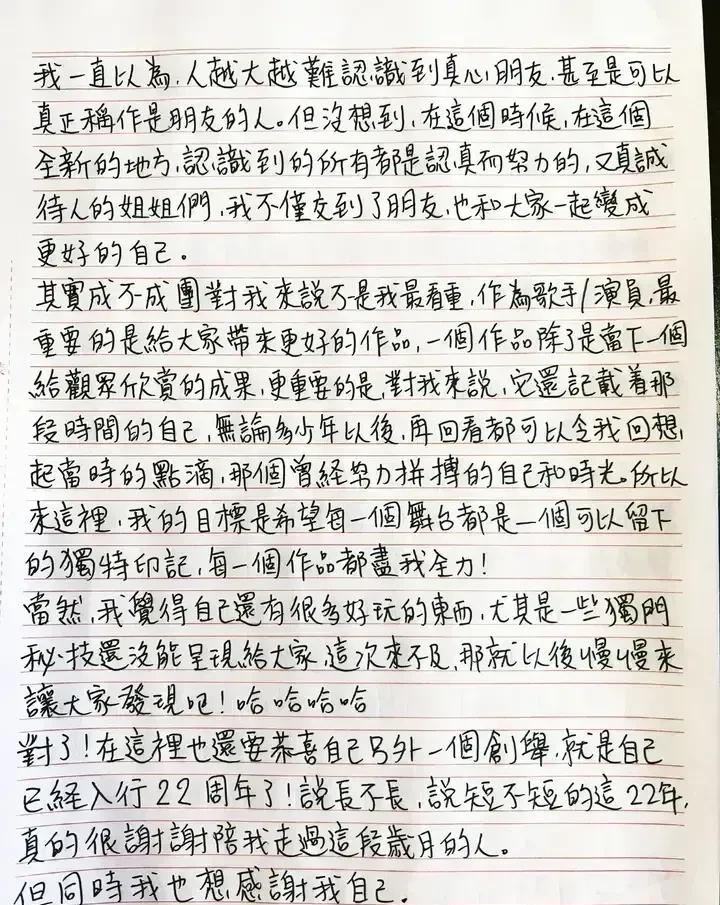 我一直以為,人越大越難認識到真心朋友,甚至是可以
真正稱作是朋友的人。但沒想到,在這個時候,在這個
全新的地方,認識到的所有都是認真而努力的,又真誠
待人的姐姐們,我不僅交到了朋友,也和大家一起變成
更好的自己。
其實成不成團對我來說不是我最看重,作為歌手/演員,最
重要的是給大家帶來更好的作品,一個作品除了是當下一個
給觀眾欣賞的成果,更重要的是,對我來說,它還記載着那
段時間的自己,無論多少年以後,再回看都可以令我回想,
起當時的點滴,那個曾経努力拼搏的自己和時光。所以
來這裡,我的目標是希望每一個舞台都是一個可以留下
的獨特印記,每一個作品都盡我全力!
當然,我覺得自己還有很多好玩的東西,尤其是一些獨門
秘技還沒能呈現給大家,這次來不及,那就以後慢慢來
讓大家發現吧!哈哈哈哈
對了!在這裡也還要恭喜自己另外一個創舉,就是自己
已経入行22周年了!說長不長,說短不短的這22年,
真的很謝謝陪我走過這段歲月的人。
但同時我也想感謝我自己.